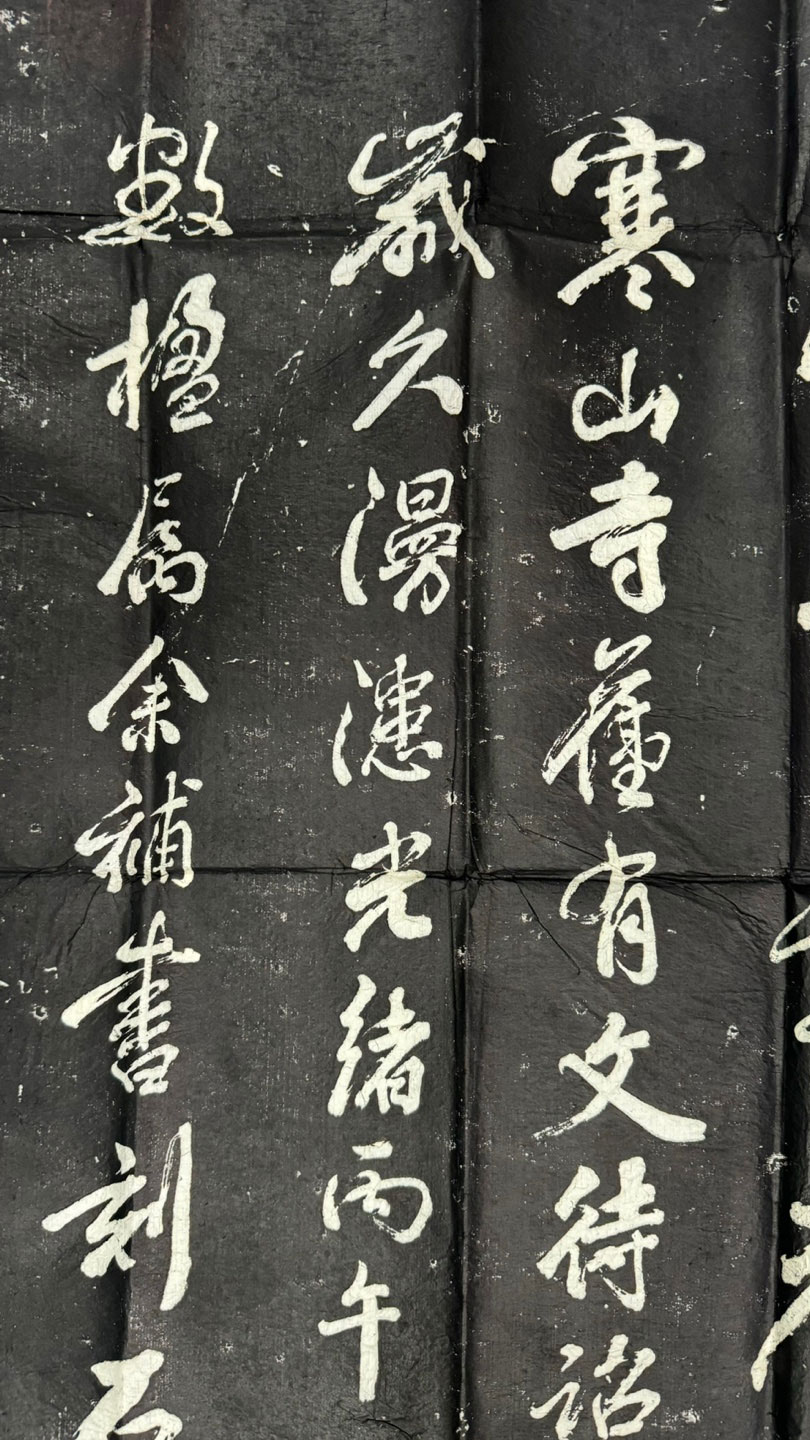 寒山寺舊有文待詔
歲久漫漶光緒丙午
數楹屬余補書刻石